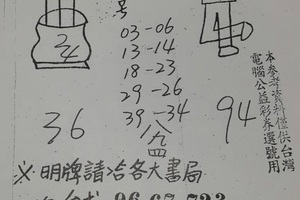 号
03-06
13-14
18-23
29-26
39-34
公益
24
4
36
94
本參考資料僅供台灣
電腦公益彩券選號用
※明牌請洽各大書局